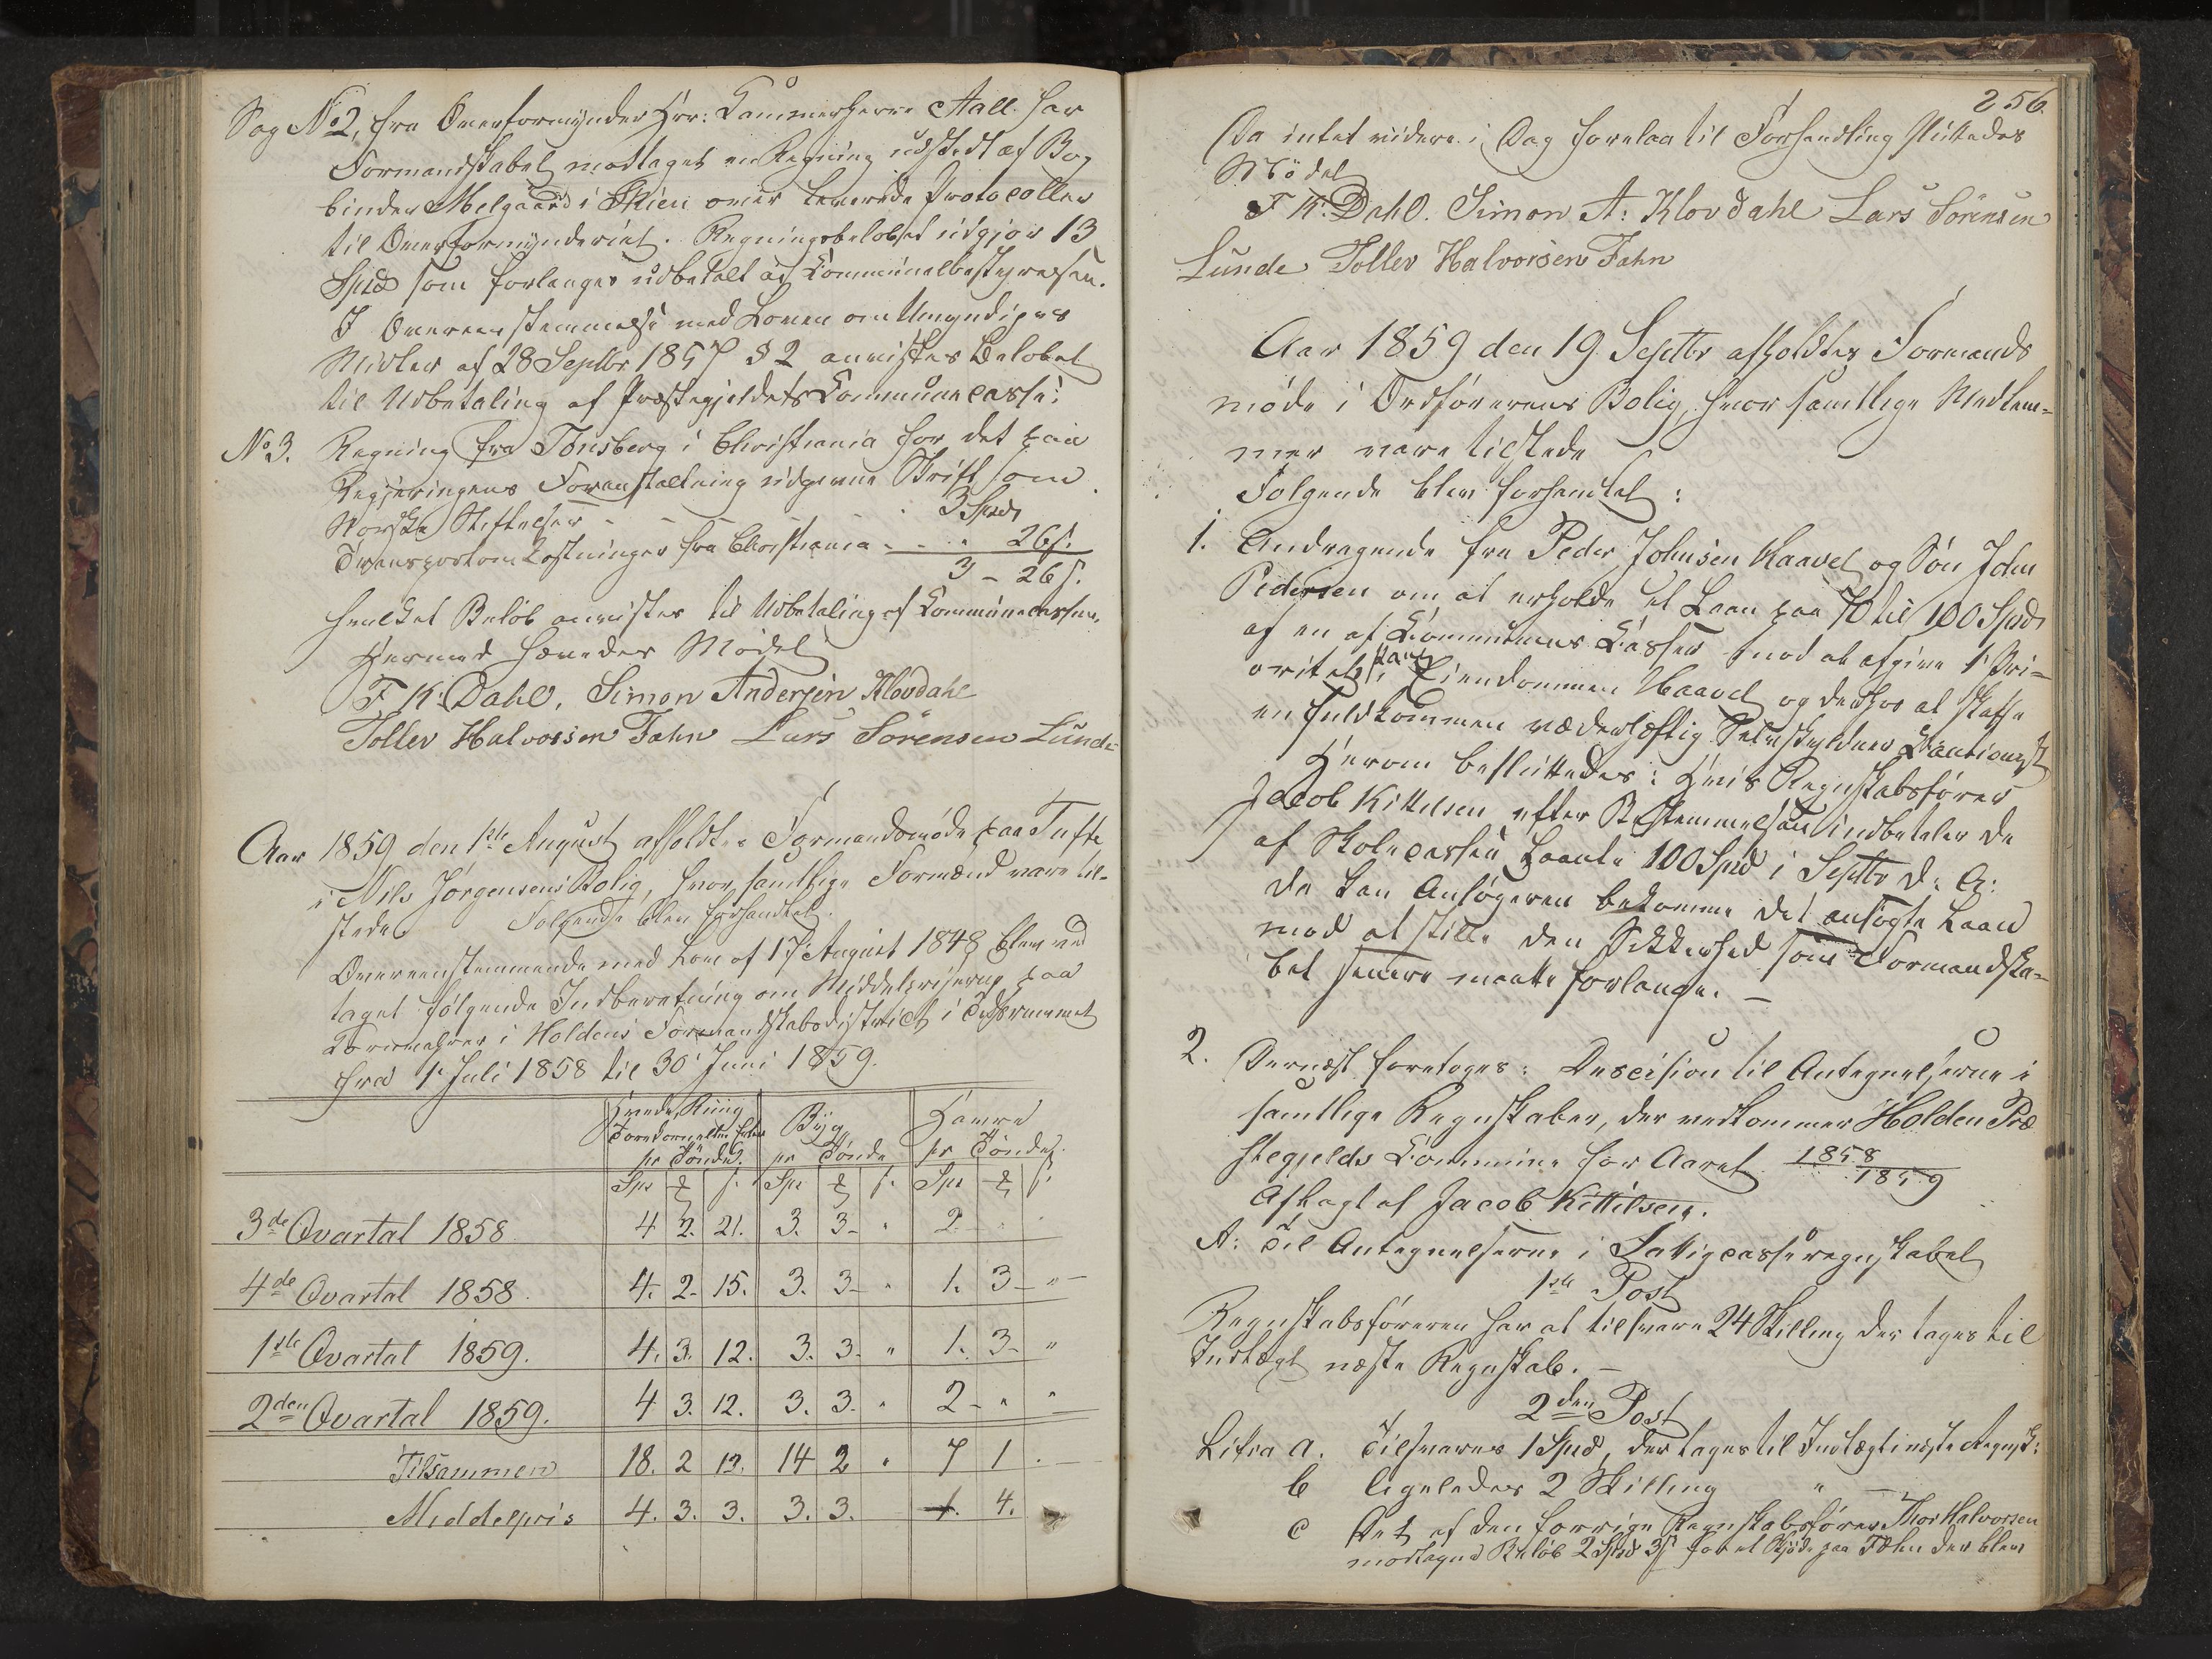 Sag No 2, fra Overformynder Hrr: Kammerherre Aall har
Formandskabet modtaget en Regning udstedt af Bog
binder Melgaard i Skien over leverede Protocoller
til Overformynderiet. Regningsbeløbet udgjør 13
Spd som forlanges udbetalt af Kommunalbestyrelsen.
I Overensstemmelse med Loven om Umyndiges
Midler af 28 Septbr 1857 § 2 anvistes Beløbet
til Udbetaling af Præstegjeldets Kommunecasse.
No 3. Regning fra Tønsberg i Christiania for det paa
Regjeringens Foranstaltning udgivne Skrift som
Norske Stiftelser - - . 3 Spd
Transportomkostninger fra Christiania - - . 26 s.
3 - 26 s.
hvilket Beløb anvistes til Udbetaling af Kommunecassen.
Hermed hævedes Mødet
F K. Dahl, Simon Andersen Klovdahl
Tollev Halvorsen Fahn Lars Sörensen Lunde
Aar 1859 den 1ste August afholdtes Formandsmøde paa Tufte
i Nils Jørgensens Bolig, hvor samtlige Formænd vare til-
stede. Følgende blev forhandlet.
Overeensstemmende med Lov af 17 August 1848 blev ved
taget følgende Indberetning om Middelpriserne paa
Kornvahrer i Holdens Formandskabsdistrict i Tidsrummet
fra 1 Juli 1858 til 30 Juni 1859.
Hvede, Rüug Byg Havre
pr Tønde. pr Tønde pr Tønde.
Spd s. Spd s. Spd s.
3de Qvartal 1858 4 2. 21. 3. 3- " 2. . .
4de Qvartal 1858. 4. 2. 15. 3. 3- " 1. 3- "-
1ste Qvartal 1859. 4. 3. 12. 3. 3. " 1. 3- "
2den Qvartal 1859. 4 3. 12. 3. 3. " 2- " "
Tilsammen 18. 2 12. 14 2 " 7 1 .
Middelpris 4. 3. 3. 3. 3. 1. 4.
256.
Da intet videre i Dag forelaa til Forhandling sluttedes
Mødet
F K. Dahl. Simon A: Klovdahl Lars Sörensen
Lunde Tollev Halvorsen Fahn
Aar 1859 den 19 Septbr afholdtes Formands
møde i Ordførerens Bolig, hvor samtlige Medlem-
mer vare tilstede
Følgende blev forhandlet:
1. Andragende fra Peder Johnsen Haavet og Søn John
Pedersen om at erholde et Laan paa 70 til 100 Spd
af en af Kommunens Kasser mod at afgive 1 Pri-
oritets Pant i Eiendommen Haavet og derhos at skaffe
en fuldkommen vederhæftig Selvskyldner Kautionist
Herom besluttedes: Hvis Regnskabsfører
Jacob Kittilsen efter Bestemmelsen indbetaler de
af Skolecassen laante 100 Spd i Septbr d: A:
da kan Ansøgeren bekomme det ansøgte Laan
mod at stille den Sikkerhed som Formandska-
bet senere maatte forlange. -
2. Dernæst foretoges: Descision til Antegnelserne i
samtlige Regnskaber, der vedkommer Holden Præ
stegjelds Kommune for Aaret 1858/1859
Aflagt af Jacob Kittilsen.
A: Til Antegnelserne i Fattigcasseregnskabet
1ste Post
Regnskabsføreren har at tilsvare 24 Skilling der tages til
Indtægt næste Regnskab. -
2den Post
Litra a. Tilsvares 1 Spd, der tages til Indtægt i næste Regnsk:
b ligeledes 2 Skilling " -
c Det af den forrige Regnskabsfører Thor Halvorsen
modtagne Beløb 2 Spd 3 s for et Skjøde paa Fæhn der blev